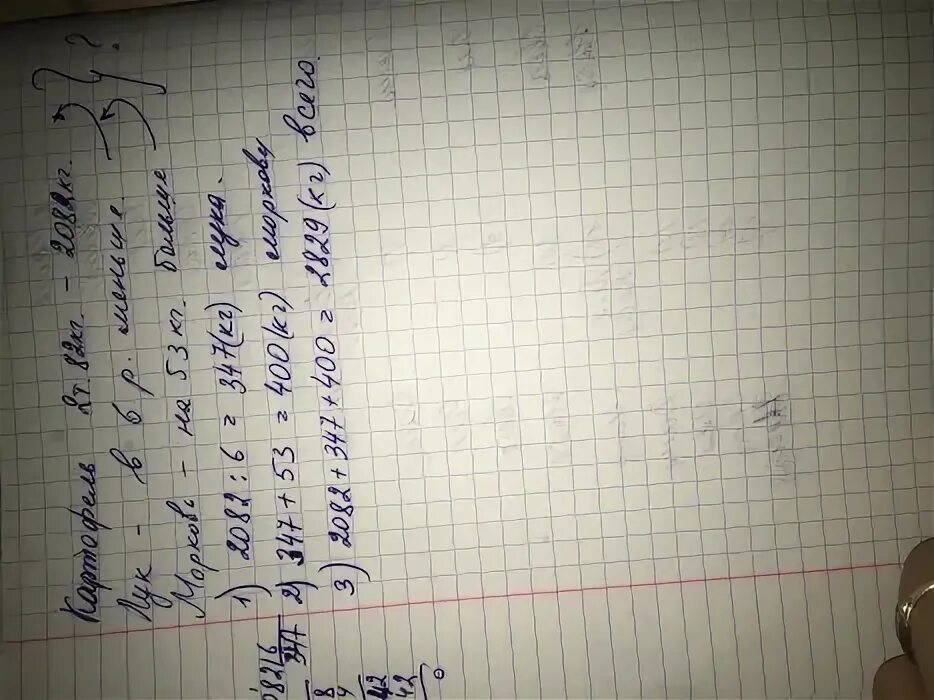 Картофель 2т. 82кг. - 2082кг.
Лук - в 6 р. меньше
Морковь - на 53 кг. больше
?
1) 2082 : 6 = 347(кг) лука.
2) 347 + 53 = 400(кг) моркови
3) 2082 + 347 + 400 = 2829 (кг) всего.
082 6
347
8
42
42
0